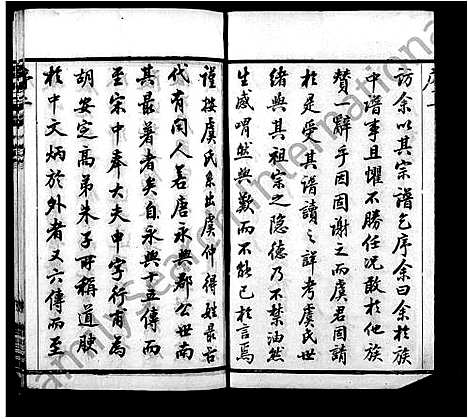 序一
訪余以其宗譜乞序余曰余於族
中譜事且懼不勝任况敢於他族
贊一辭乎因固謝之而虞君固請
於是受其譜讀之詳考虞氏世
緒與其祖宗之隐德乃不禁油然
生感喟然興歎而不能已於言焉
謹按虞氏系出虞仲得姓最古
代有闻人若唐永興郡公世南
其最著者矣自永興十五傳而
至宋中奉大夫申字行甫為
胡安定高弟朱子所稱道腴
於中文炳於外者又六傳而至
FamilySearch International